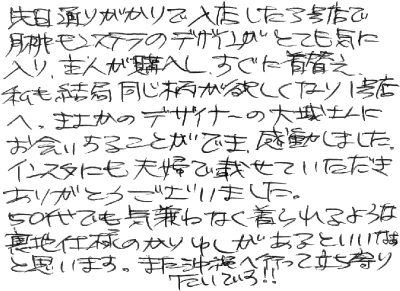 先日通りがかりで入店した3号店で
月桃モンステラのデザインがとても気に
入り、主人が購入し、すぐに着替え、
私も結局同じ柄が欲しくなり1号店
へ、まさかのデザイナーの大城さんに
お会いすることができ、感動しました。
インスタにも夫婦で載せていただき
ありがとうございました。
50代でも気兼ねなく着られるような
裏地仕様のかりゆしがあるといいなぁ
と思います。また沖縄へ行って立ち寄り
たいでいる!!